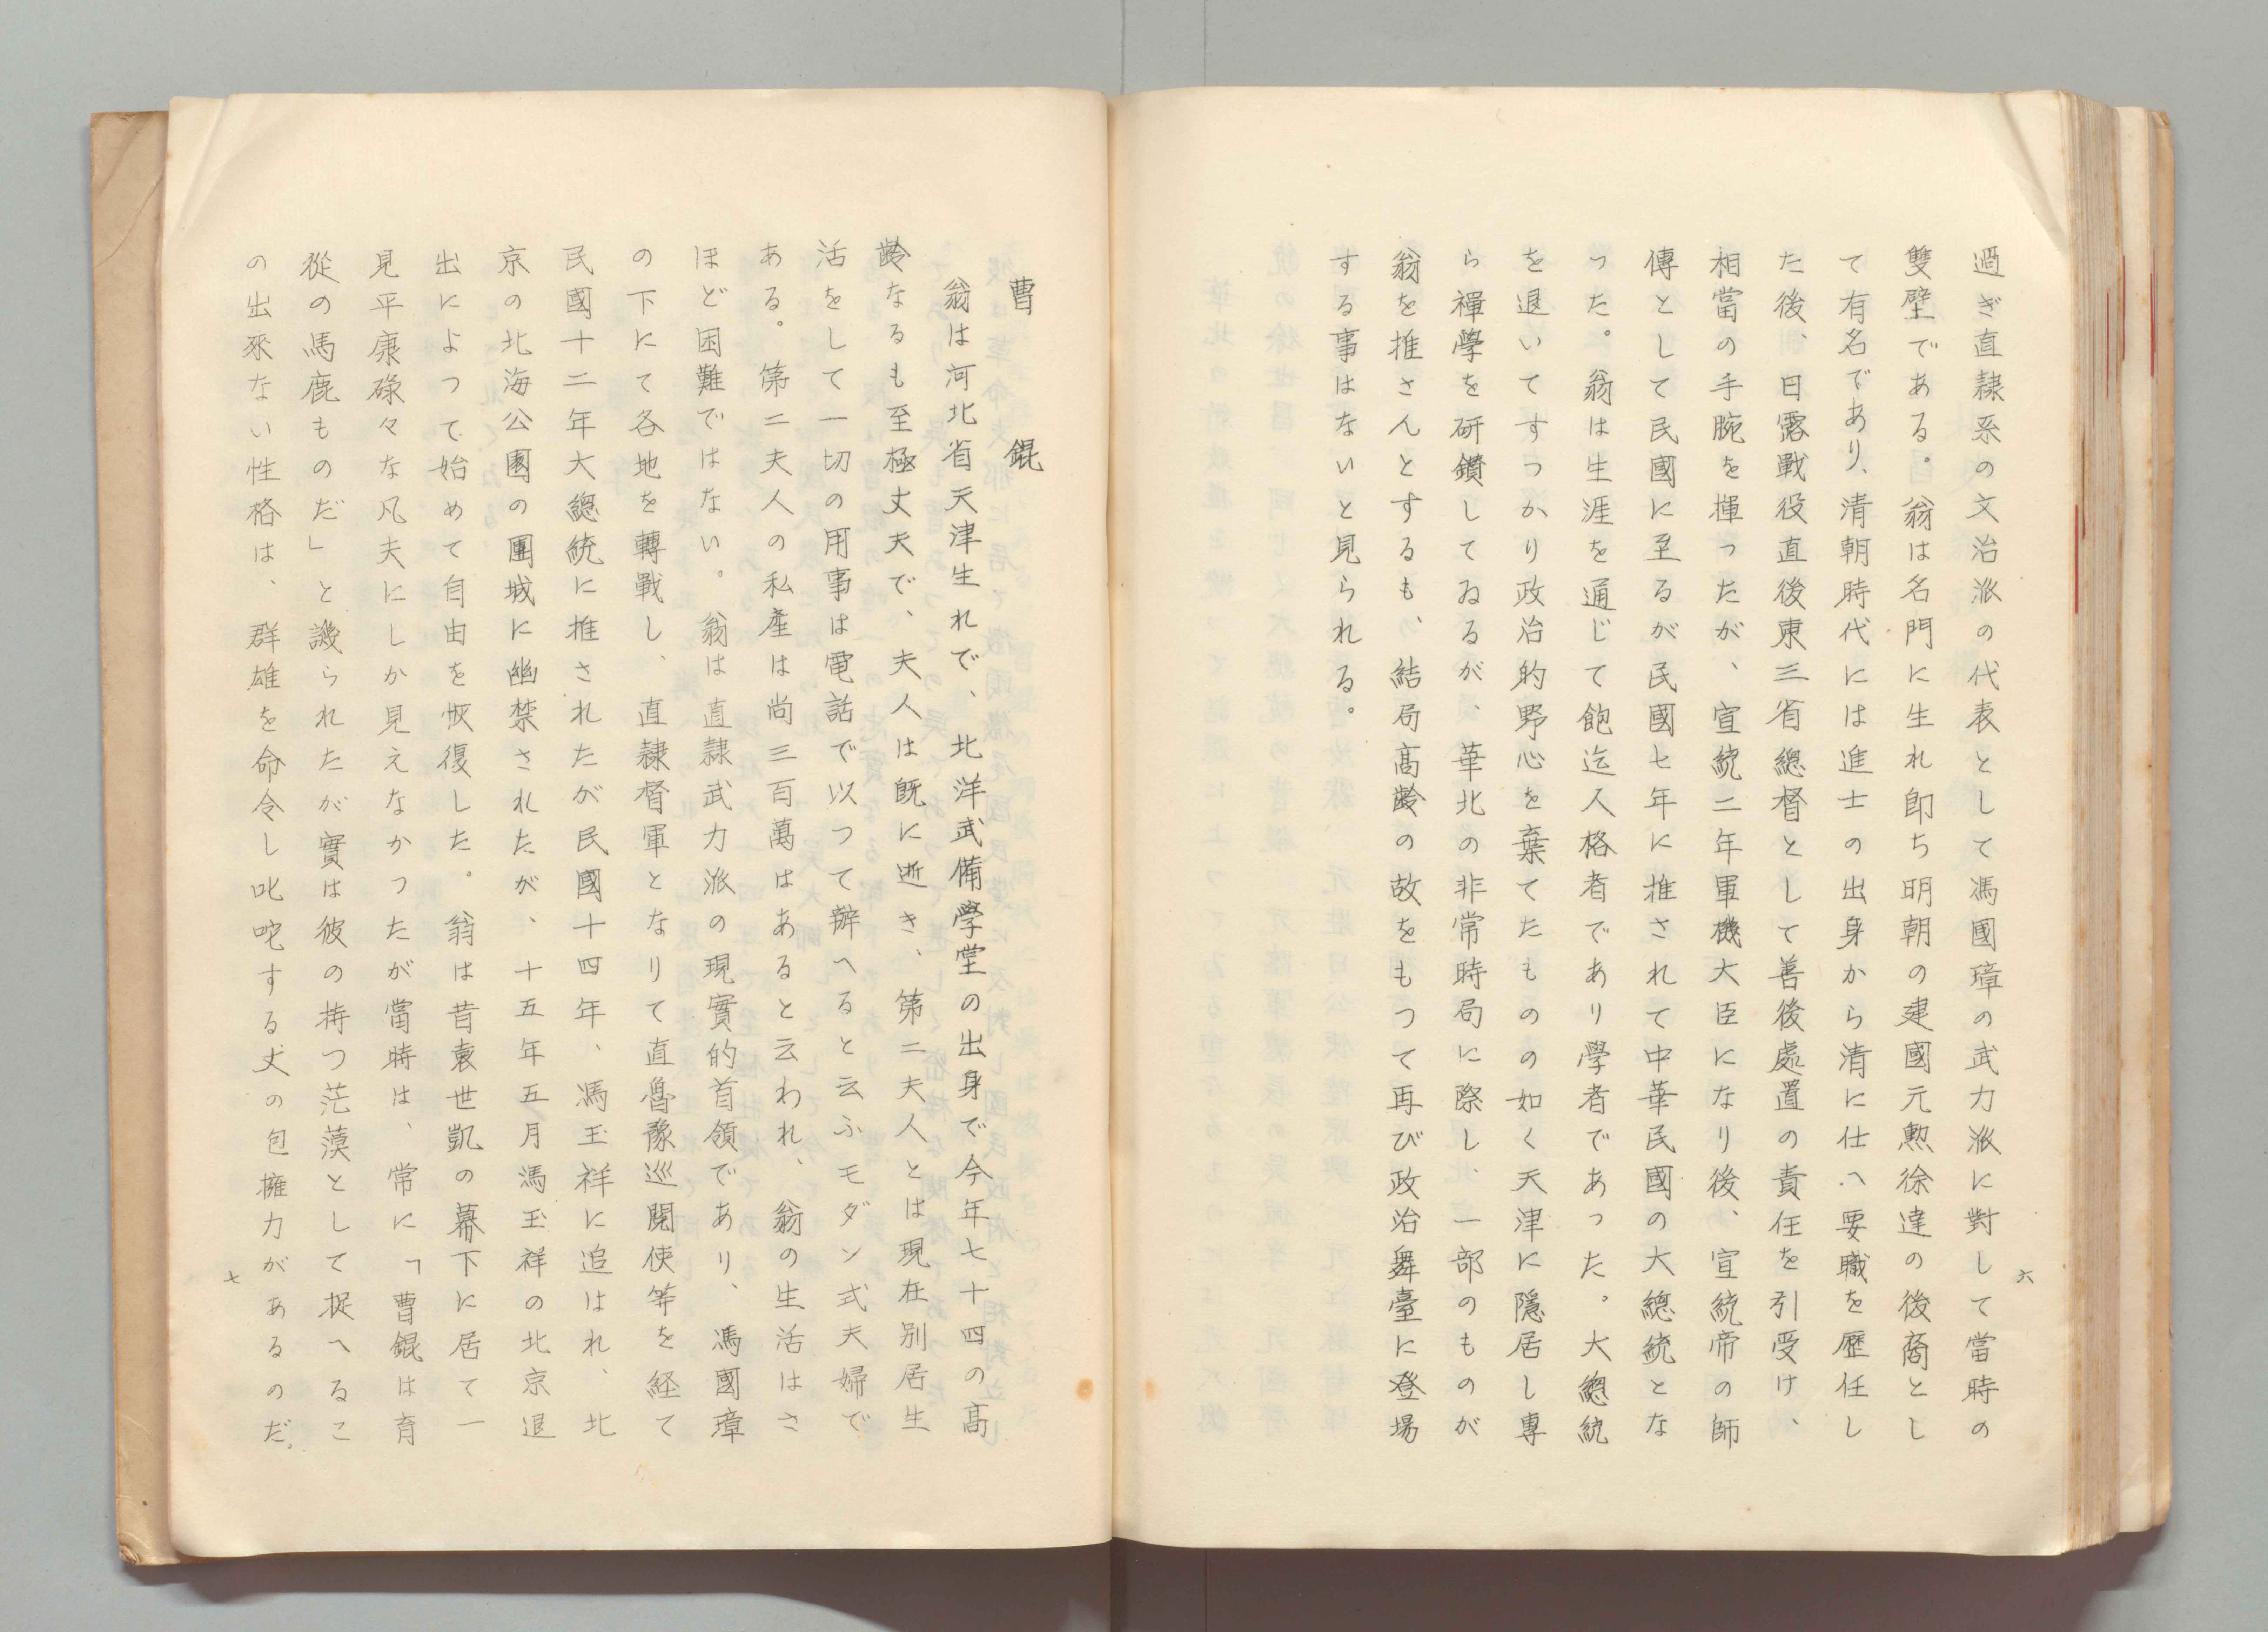 過ぎ直隷系の文治派の代表として馮國璋の武力派に對して當時の
雙壁である。翁は名門に生れ卽ち明朝の建國元勲徐達の後裔とし
て有名であり、清朝時代には進士の出身から清に仕へ要職を歷任し
た後、日露戰役直後東三省總督として善後處置の責任を引受け、
相當の手腕を揮つたが、宣統二年軍機大臣になり後、宣統帝の師
傳として民國に至るが民國七年に推されて中華民國の大總統とな
つた。翁は生涯を通じて飽迄人格者であり學者であつた。大總統
を退いてすつかり政治的野心を棄てたものの如く天津に隱居し專
ら禪學を研鑽してゐるが、華北の非常時局に際し、一部のものが
翁を推さんとするも、結局高齡の故をもつて再び政治舞臺に登場
する事はないと見られる。
六
曹錕
翁は河北省天津生れで、北洋武備學堂の出身で今年七十四の高
齡なるも至極丈夫で、夫人は既に逝き、第二夫人とは現在別居生
活をして一切の用事は電話で以つて辦へると云ふモダン式夫婦で
ある。第二夫人の私產は尚三百萬はあると云われ、翁の生活はさ
ほど困難ではない。翁は直隷武力派の現實的首領であり、馮國璋
の下にて各地を轉戰し、直隷督軍となりて直魯豫巡閱使等を経て
民國十二年大總統に推されたが民國十四年、馮玉祥に追はれ、北
京の北海公園の團城に幽禁されたが、十五年五月馮玉祥の北京退
出によつて始めて自由を恢復した。翁は昔袁世凱の幕下に居て一
見平庸碌々な凡夫にしか見えなかつたが當時は、常に「曹錕は育
從の馬鹿ものだ」と譏られたが實は彼の持つ茫漠として捉へるこ
の出來ない性格は、群雄を命令し叱咤する丈の包擁力があるのだ。
七